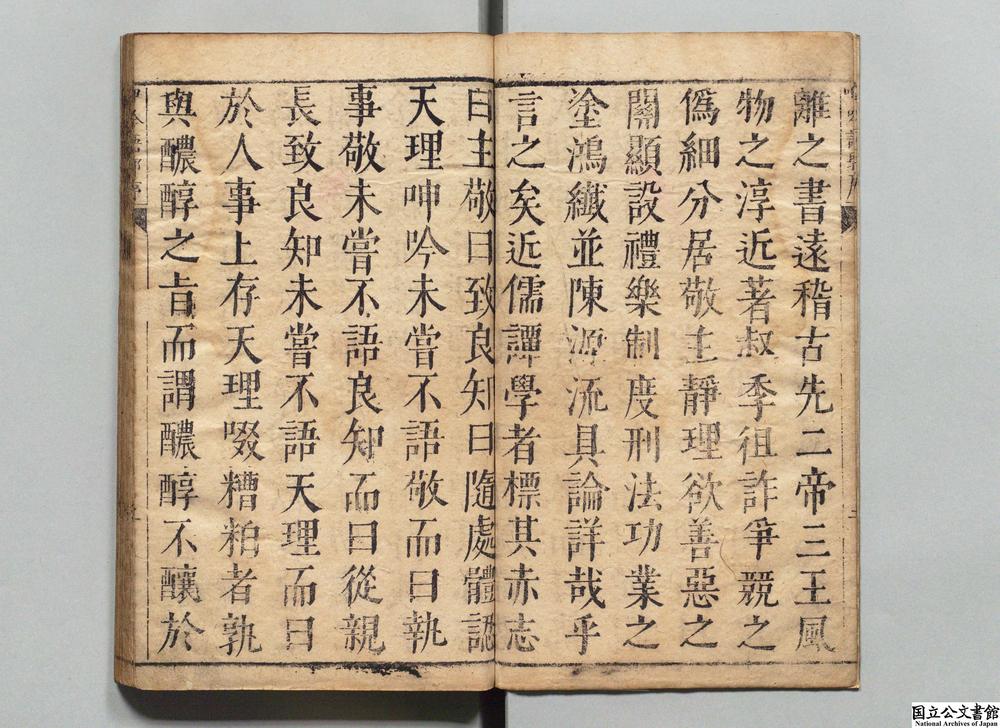 離之書遠稽古先二帝三王風
物之淳近著叔季徂詐爭競之
僞細分居敬主靜理欲善惡之
關顯設禮樂制度刑法功業之
塗鴻纖並陳源流具論詳哉乎
言之矣近儒譚學者標其赤志
曰主敬曰致良知曰隨處體認
天理呻吟未嘗不語敬而曰執
事敬未嘗不語良知而曰從親
長致良知未嘗不語天理而曰
於人事上存天理啜糟粕者孰
與醲醇之旨而謂醲醇不釀於
国立公文書館
National Archives of Japan